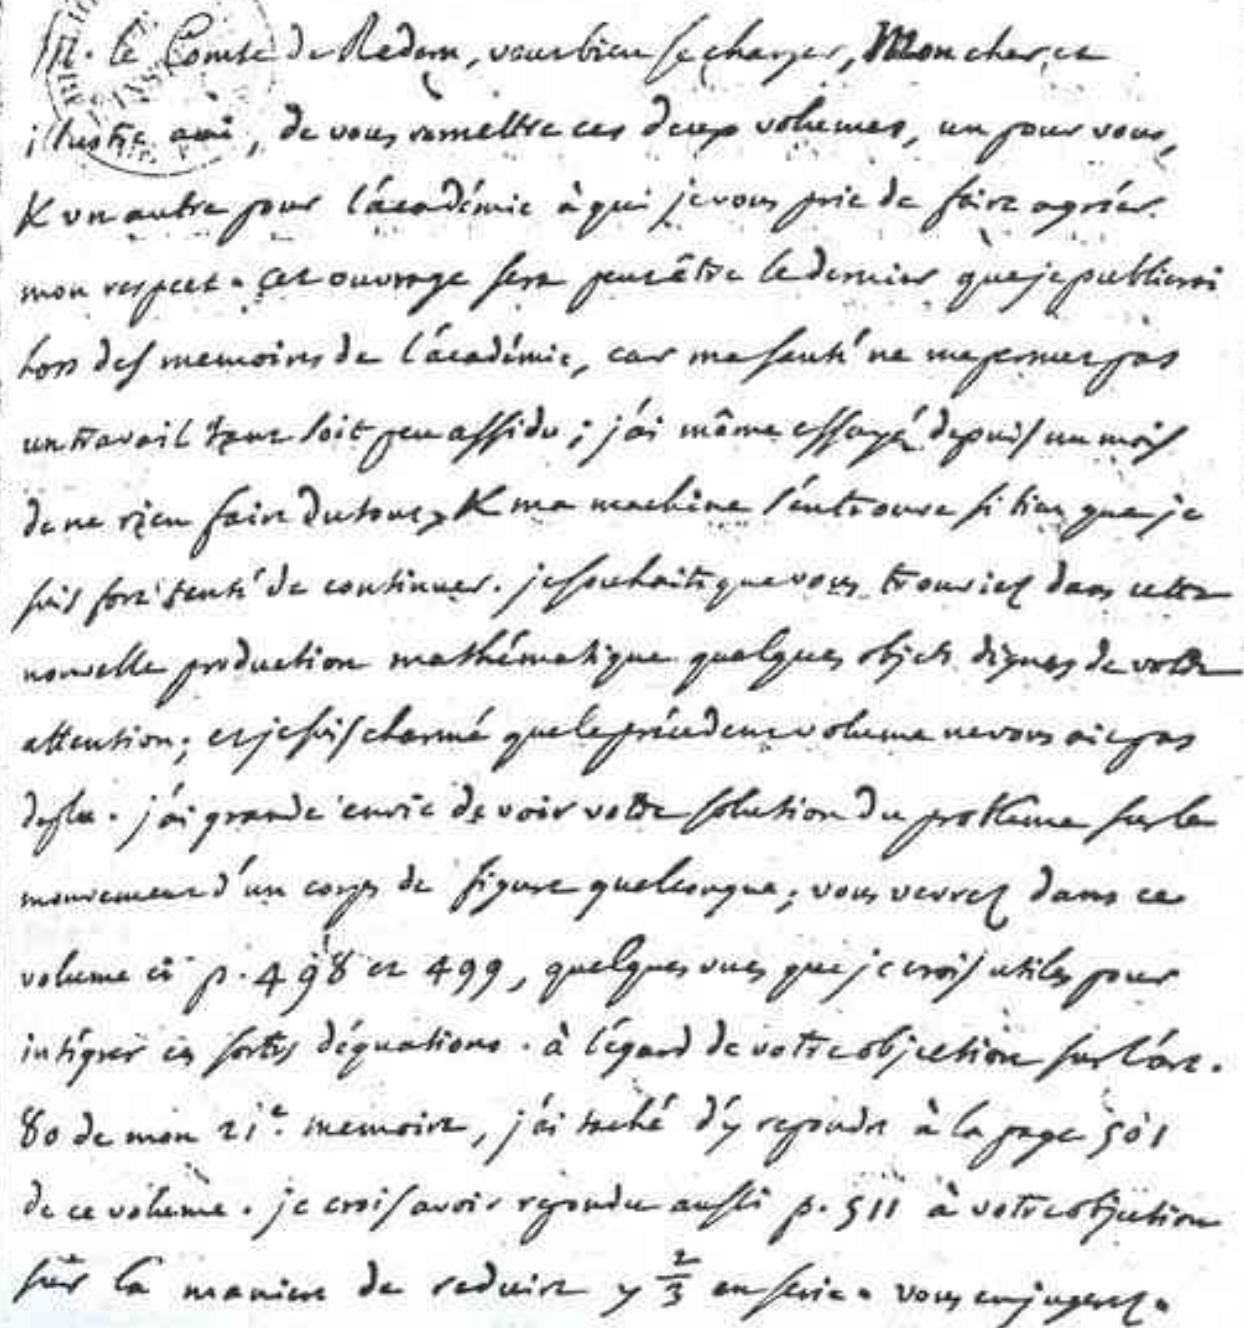 M. le Comte de Redern, veut bien se charger, Mon cher, et
illustre ami, de vous remettre ces deux volumes, un pour vous,
& un autre pour l'académie à qui je vous prie de faire agréer
mon respect. Cet ouvrage sera peut être le dernier que je publierai
hors des memoires de l'académie, car ma santé ne me permet pas
un travail tant soit peu assidu; j'ai même essayé depuis un mois
de ne rien faire du tout, & ma machine s'en trouve si bien que je
suis fort tenté de continuer. je souhaite que vous trouviez dans cette
nouvelle production mathématique quelques objets dignes de votre
attention; et je suis charmé que le précedent volume ne vous ait pas
deplu. j'ai grande envie de voir votre solution du probleme sur le
mouvement d'un corps de figure quelconque; vous verrez dans ce
volume ci p. 498 et 499, quelques vues que je crois utiles pour
intégrer ces sortes d'équations. à l'égard de votre objection sur l'art.
80 de mon 21e. memoire, j'ai taché d'y repondre à la page 501
de ce volume. je crois avoir repondu aussi p. 511 à votre objection
sur la maniere de reduire y 2/3 en serie. vous en jugerez.